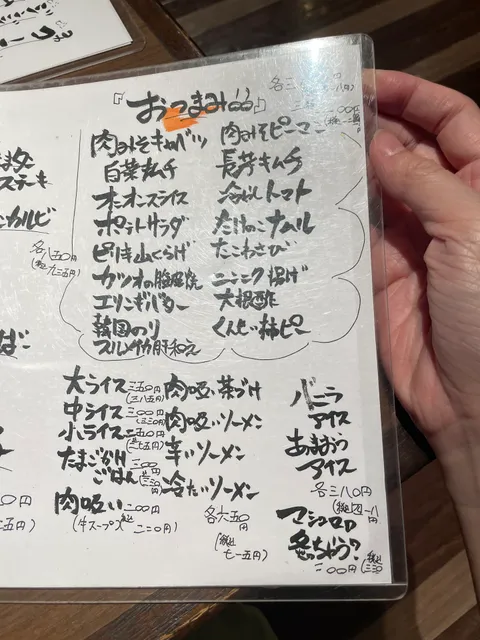 『おつまみ』
肉みそキャベツ
白菜キムチ
オニオンスライス
ポテトサラダ
ピリ辛山くらげ
カツオの
エリンギバター
韓国のり
スルメイカ肝和え
肉みそピーマン
長芋キムチ
冷やしトマト
たけのこナムル
たこわさび
ニンニク揚げ
大根酢
くんせい柿ピー
ステーキ
カルビ
各八五〇円
(税込九三五円)
大ライス 三五〇円
(三八五円)
中ライス 三〇〇円
(三三〇円)
小ライス 二五〇円
(二七五円)
たまごかけ
ごはん
肉吸い 二〇〇円
(牛スープ 税込二二〇円)
肉吸い茶づけ
肉吸いソーメン
辛いソーメン
冷たいソーメン
各六五〇円
(税込七一五円)
バニラ
アイス
あまおう
アイス
各三八〇円
(税込四一八円)
マシュマロ
焼いちゃう?
三〇〇円 (税込三三〇)